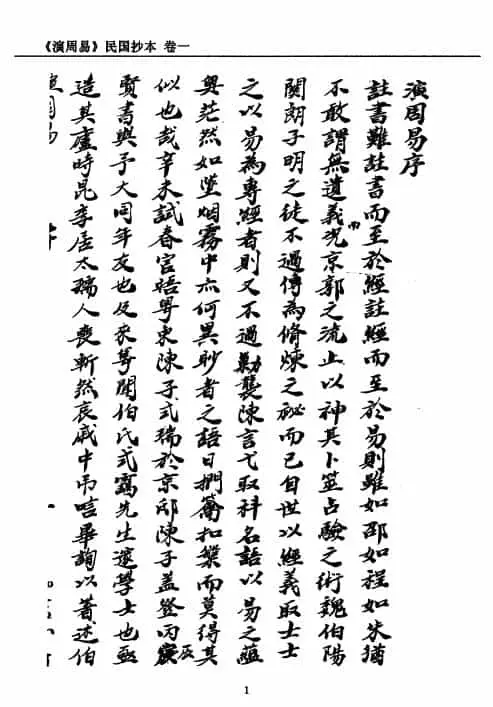 《演周易》民国抄本 卷一
演周易序
註書難註書而至於經註經而至於易則雖如邵如程如朱猶
不敢謂無遺義况而京郭之流止以神其卜筮占驗之術魏伯陽
關朗子明之徒不過傳為脩煉之秘而已自世以經義取士士
之以易為專經者則又不過勦襲陳言弋取科名語以易之蘊
奥茫然如墜烟霧中亦何異眇者之語日捫籥扣槃而莫得其
似也哉辛未試春官晤粤東陳子式瑞於京邸陳子蓋登丙辰
賢書與予大同年友也及来粤聞伯氏式靄先生邃學士也亟
造其廬時昆季居太孺人喪斬然哀戚中弔唁畢詢以著述伯
1